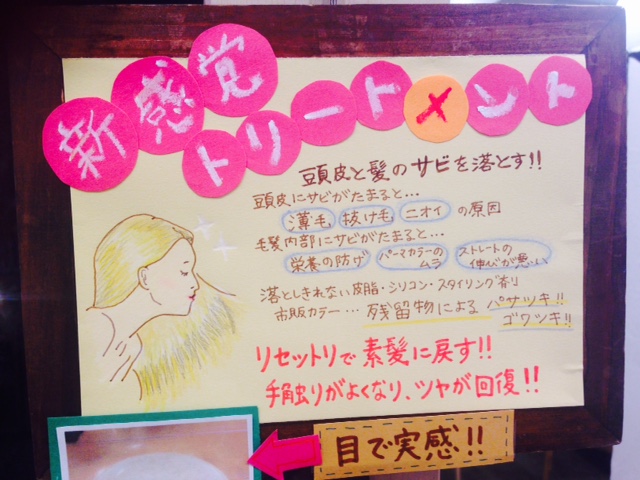 新感覚
トリートメント
頭皮と髪のサビを落とす!!
頭皮にサビがたまると…
薄毛 抜け毛 ニオイ の原因
毛髪内部にサビがたまると…
栄養の防げ パーマカラーのムラ ストレートの伸びが悪い
落としきれない皮脂・シリコン・スタイリング剤
市販カラー… 残留物による パサツキ!!
ゴワツキ!!
リセットリで素髪に戻す!!
手触りがよくなり、ツヤが回復!!
目で実感!!